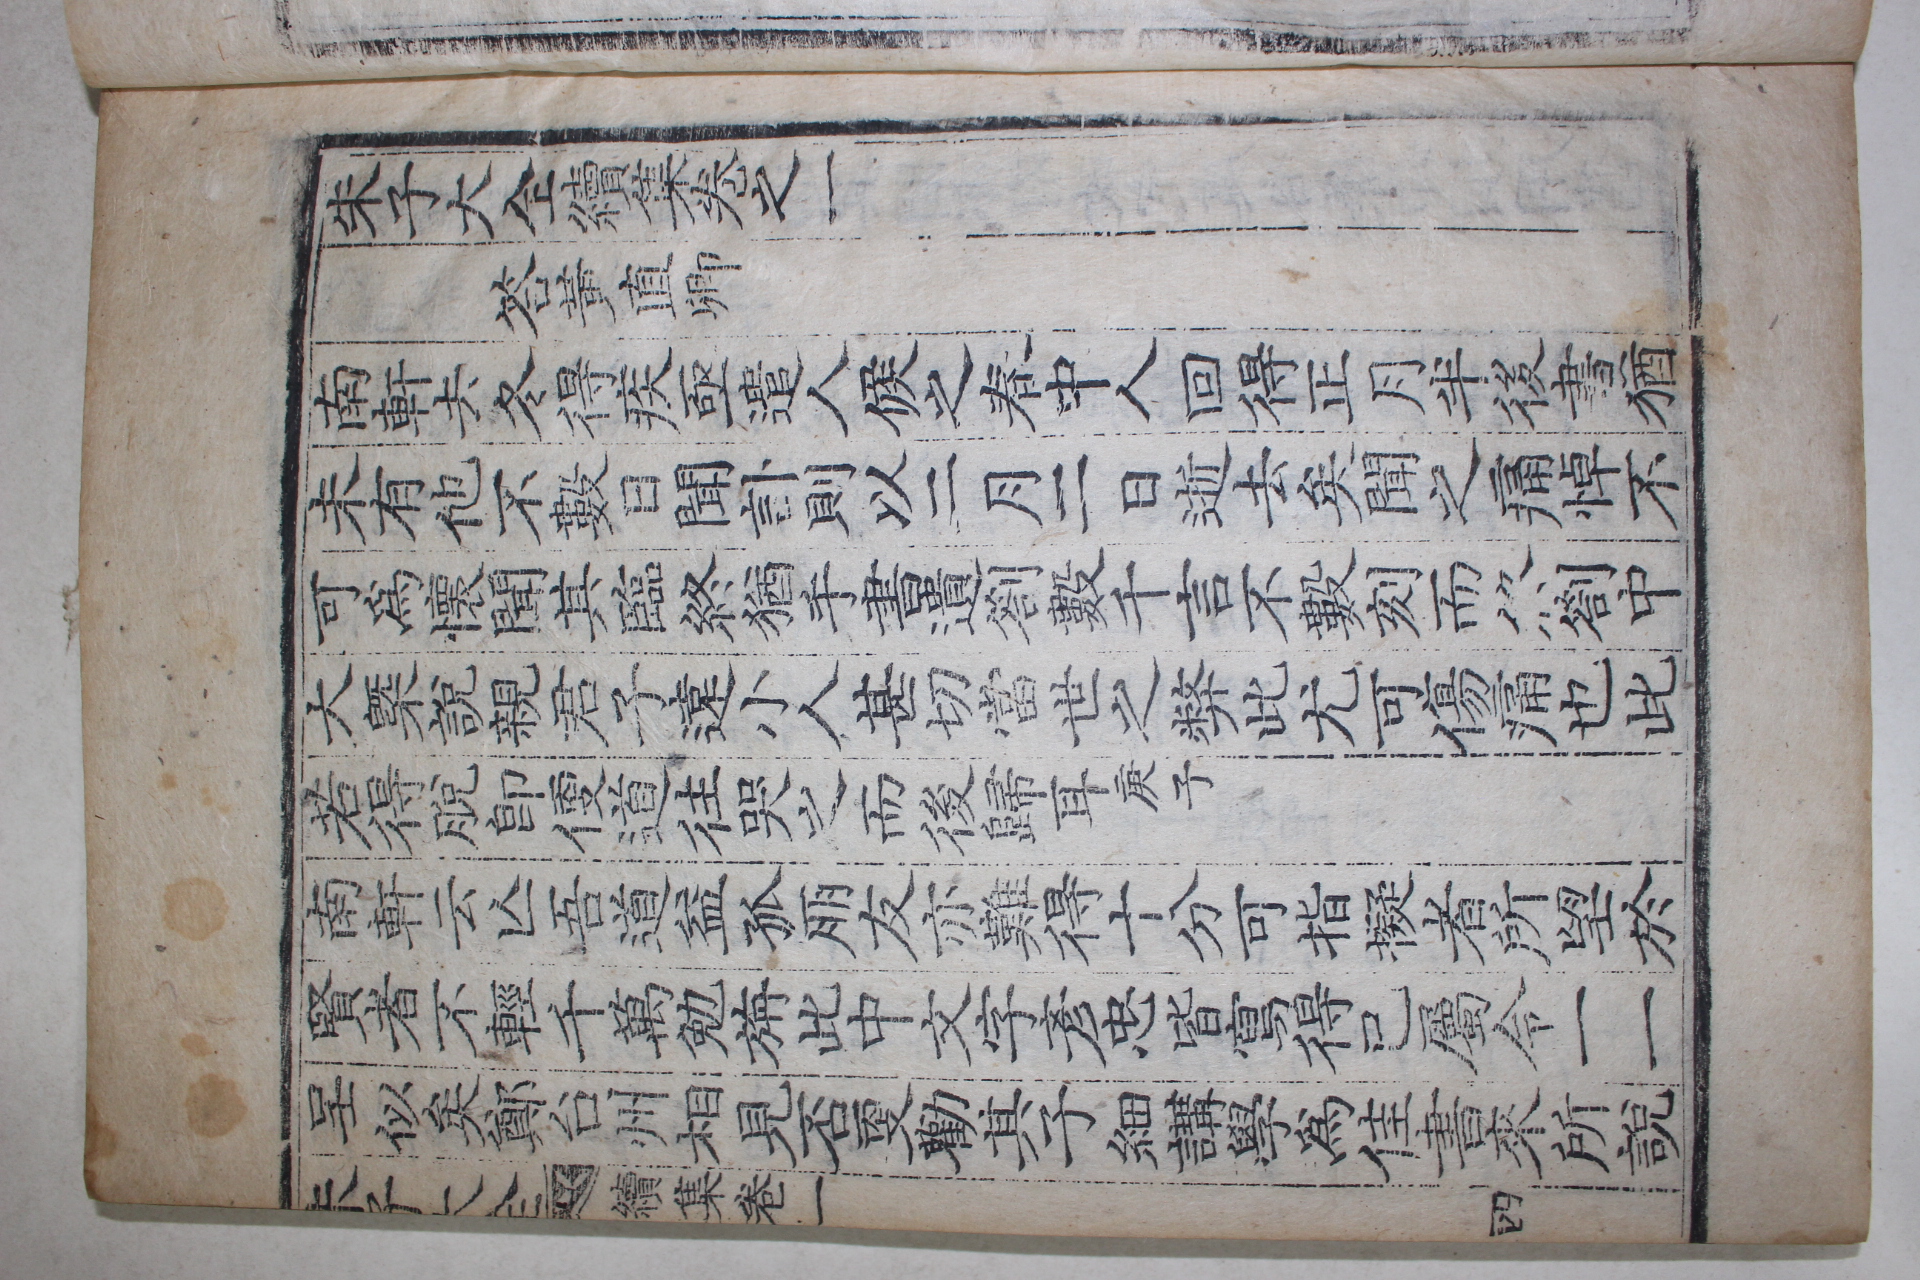 朱子大全續集卷之一
答黃直卿
南軒去冬得疾亟遣人候之春中人回得正月半後書猶
未有他不數日聞訃則以二月二日逝去矣聞之痛悼不
可爲懷聞其臨終猶手書遺劄數千言不數刻而終劄中
大槩說親君子遠小人甚切當世之弊此尤可傷痛也此
若得脫卽便道往哭之而後歸耳庚子
南軒云亡吾道益孤朋友亦難得十分可指擬者所望於
賢者不輕千萬勉旃此中文字彥忠皆寫得已屬令一一
呈似矣鄭台州相見否更勸其子細講學爲佳書來所說
朱子大全 續集卷一 四